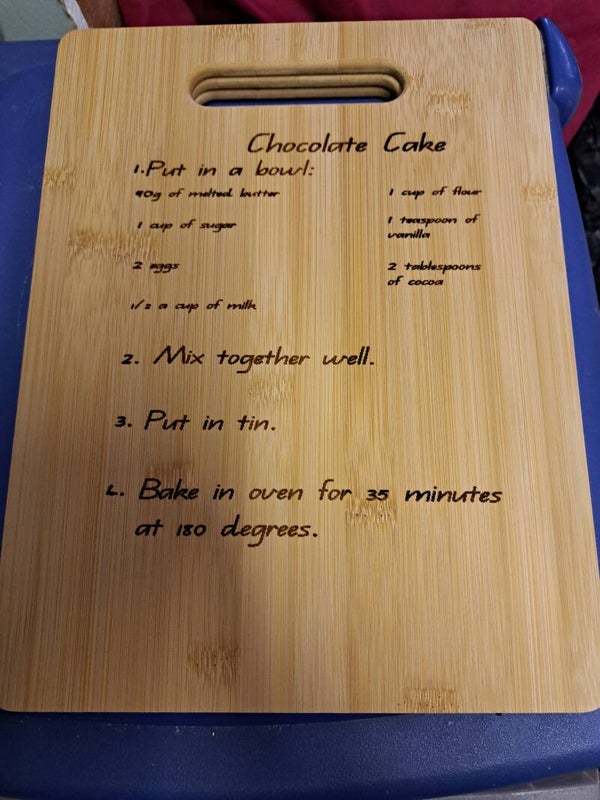 Chocolate Cake
1. Put in a bowl:
90g of melted butter
1 cup of sugar
2 eggs
1/2 a cup of milk
1 cup of flour
1 teaspoon of
vanilla
2 tablespoons
of cocoa
2. Mix together well.
3. Put in tin.
4. Bake in oven for 35 minutes
at 180 degrees.